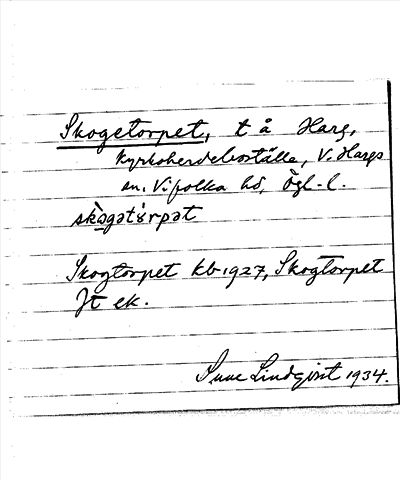 Skogetorpet, t å Harg,
kyrkoherdeboställe, V. Hargs
sn, Vifolka hd, Ögl. l.
skògatòrpat
Skogtorpet kb 1927, Skogtorpet
Jt ek.
Sune Lindqvist 1934.